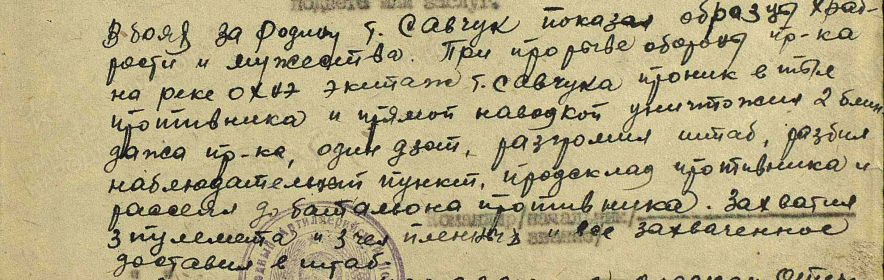 подвига или заслуг.
В боях за Родину т. Савчук показал образцы храб-
рости и мужества. При прорыве обороны пр-ка
на реке Охта экипаж т. Савчука проник в тыл
противника и прямой наводкой уничтожил 2 блин
дажа пр-ка, один дзот, разгромил штаб, разбил
наблюдательный пункт, продсклад противника и
рассеял до батальона противника. Захватил
3 пулемета и 3 чел пленных и все захваченное
доставил в штаб.